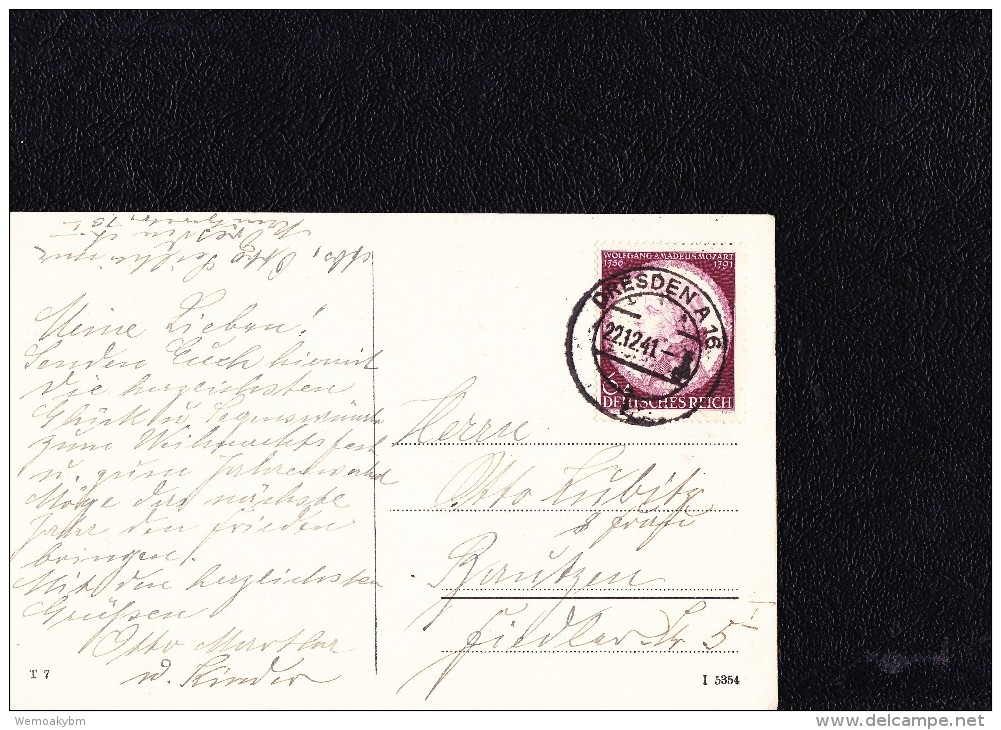 Meine Lieben!
Senden Euch hiermit
die herzlichsten
Glück u. Segenswünsche
zum Weihnachtsfest
u. zum Jahreswechsel
Möge das nächste
Jahr den Frieden
bringen!
Mit den herzlichsten
Grüßen
Otto Martha
u. Kinder
T 7
WOLFGANG AMADEUS MOZART
1756 1791
DRESDEN A 16
22.12.41.
DEUTSCHES REICH
Herrn
Otto Kubitz
u. Frau
Bautzen
Fiedler Str 5 I
I 5354
Abs. Otto
Dresden
Wemoakybm
www.delcampe.net